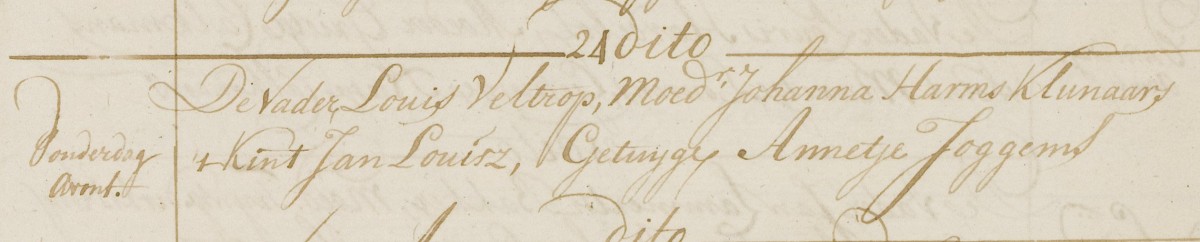 24 Dito
Donderdag
avont.
De Vader Louis Veltrop, Moedr. Johanna Harms Klunaars
t Kint Jan Louisz, Getuyge Annetje Joggems
Dito